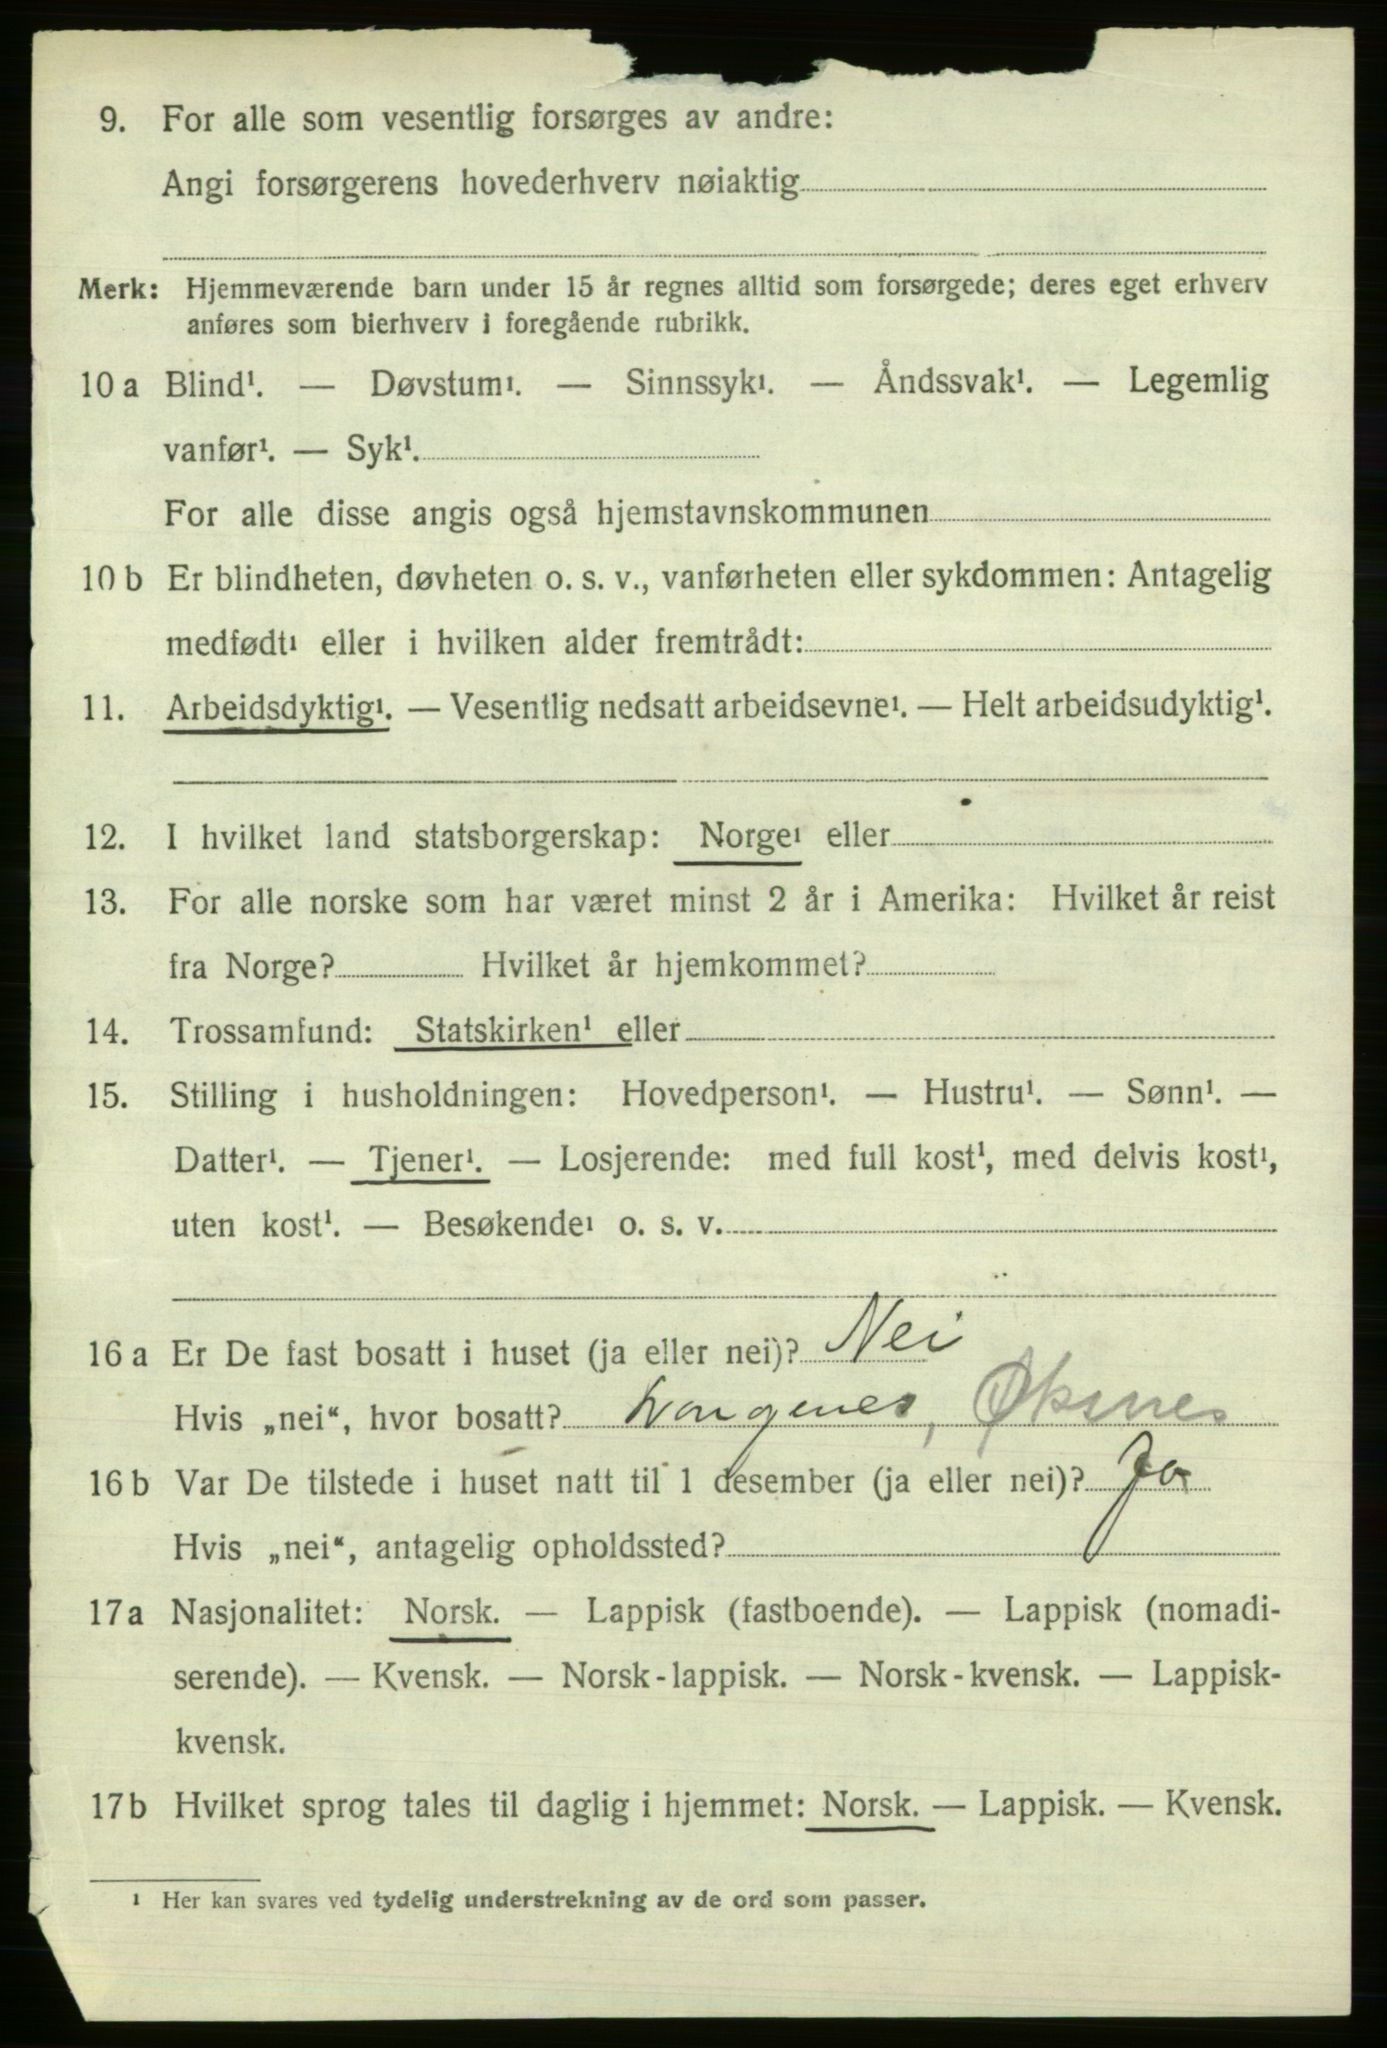 9. For alle som vesentlig forsørges av andre:
Angi forsørgerens hovederhverv nøiaktig
Merk: Hjemmeværende barn under 15 år regnes alltid som forsørgede; deres eget erhverv
anføres som bierhverv i foregående rubrikk.
10 a Blind¹. — Døvstum¹. — Sinnssyk¹. — Åndssvak¹. — Legemlig
vanfør¹. — Syk¹.
For alle disse angis også hjemstavnskommunen
10 b Er blindheten, døvheten o. s. v., vanførheten eller sykdommen: Antagelig
medfødt¹ eller i hvilken alder fremtrådt:
11. Arbeidsdyktig¹. — Vesentlig nedsatt arbeidsevne¹. — Helt arbeidsudyktig¹.
12. I hvilket land statsborgerskap: Norge¹ eller
13. For alle norske som har været minst 2 år i Amerika: Hvilket år reist
fra Norge? Hvilket år hjemkommet?
14. Trossamfund: Statskirken¹ eller
15. Stilling i husholdningen: Hovedperson¹. — Hustru¹. — Sønn¹. —
Datter¹. — Tjener¹. — Losjerende: med full kost¹, med delvis kost¹,
uten kost¹. — Besøkende¹ o. s. v.
16 a Er De fast bosatt i huset (ja eller nei)? Nei
Hvis „nei“, hvor bosatt? Langenes, Øksnes
16 b Var De tilstede i huset natt til 1 desember (ja eller nei)? Ja
Hvis „nei“, antagelig opholdssted?
17 a Nasjonalitet: Norsk. — Lappisk (fastboende). — Lappisk (nomadi-
serende). — Kvensk. — Norsk-lappisk. — Norsk-kvensk. — Lappisk-
kvensk.
17 b Hvilket sprog tales til daglig i hjemmet: Norsk. — Lappisk. — Kvensk.
¹ Her kan svares ved tydelig understrekning av de ord som passer.